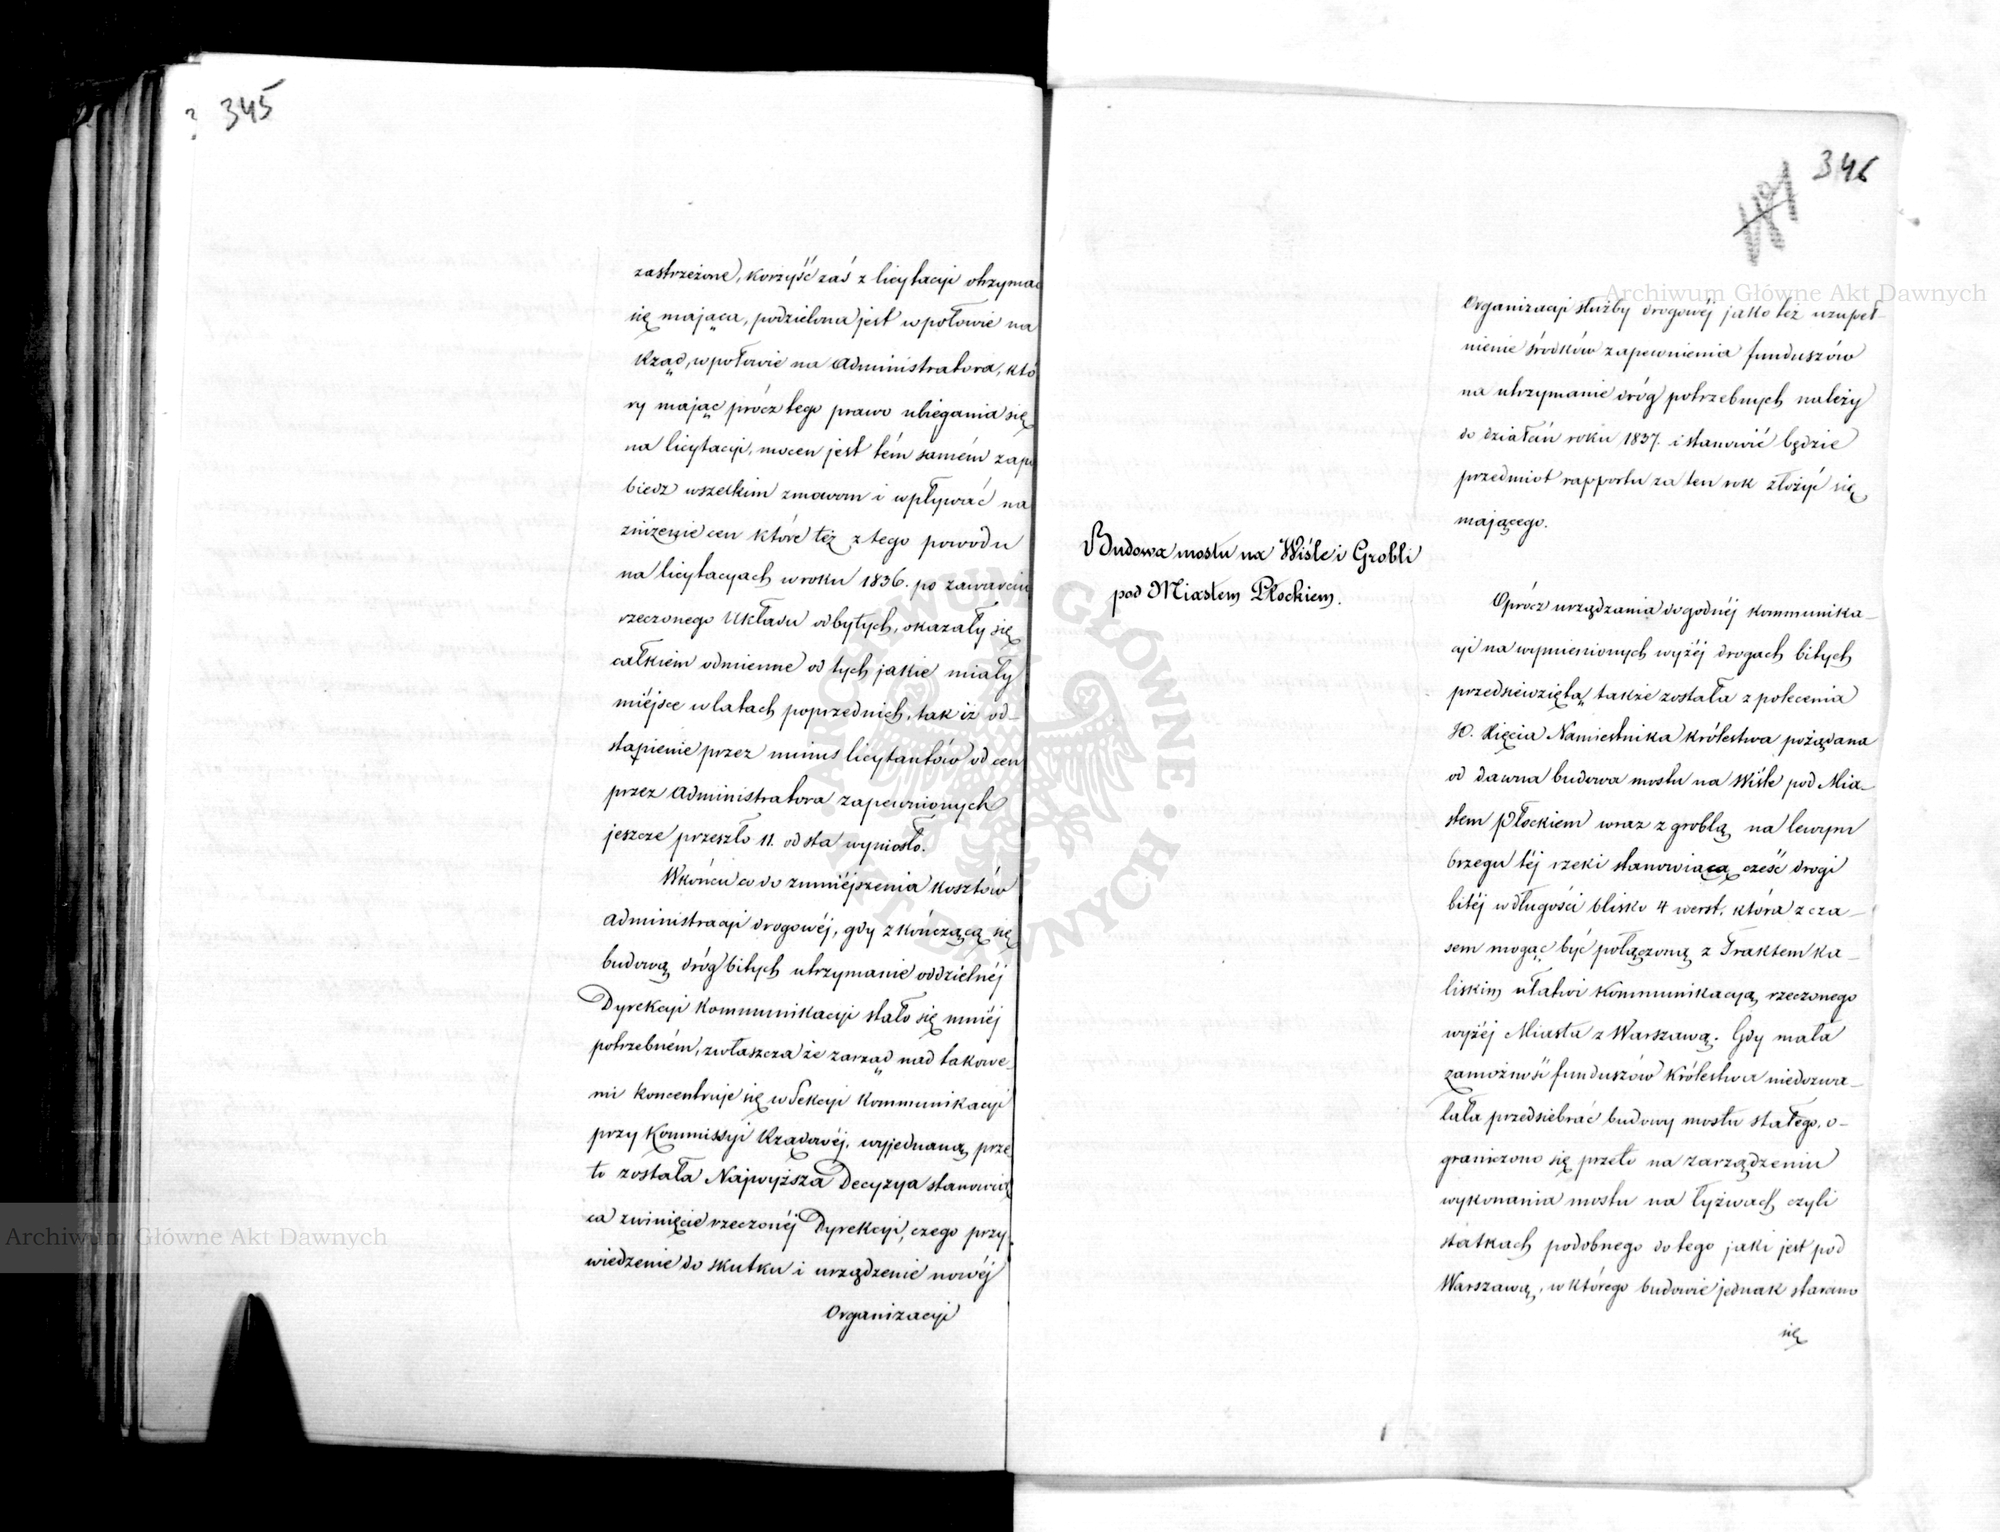 345
zastrzeżone, korzyść zaś z licytacyi otrzymać
się mająca, podzielona jest w połowie na
Rząd, w połowie na Administratora, któ
ry mając prócz tego prawo ubiegania się
na licytacyi, mocen jest tém samém zapo
biedz wszelkim zmowom i wpływać na
zniżenie cen które też z tego powodu
na licytacyach w roku 1836. po zawarciu
rzeczonego Układu odbytych, okazały się
całkiem odmienne od tych jakie miały
miéjsce w latach poprzednich, tak iż od-
stąpienie przez minus licytantów od cen
przez Administratora zapewnionych
jeszcze przeszło 11. od sta wyniosło.
W końcu co do zmniéjszenia kosztów
Administracyi drogowéj, gdy z kończącą się
budową dróg bitych utrzymanie oddzielnéj
Dyrekcyi Kommunikacyi stało się mniéj
potrzebném, zwłaszcza że zarząd nad takowe-
mi koncentruje się w Sekcyi Kommunikacyi
przy Kommissyi Rządowéj, wyjednaną prze
to została Najwyższa Decyzya stanowią
ca zwinięcie rzeczonéj Dyrekcyi, czego przy
wiedzenie do skutku i urządzenie nowéj
Organizacyi
346
Organizacyi służby drogowéj jako też uzupeł-
nienie środków zapewnienia funduszów
na utrzymanie dróg potrzebnych należy
do działań roku 1837. i stanowić będzie
przedmiot rapportu za ten rok złożyć się
mającego.
Budowa mostu na Wiśle i Grobli
pod Miastem Płockiem.
Oprócz urządzania dogodnéj kommunika-
cyi na wymienionych wyżéj drogach bitych
przedsięwziętą także została z polecenia
JO. Xięcia Namiestnika Królestwa pożądana
od dawna budowa mostu na Wiśle pod Mia-
stem Płockiem wraz z groblą na lewym
brzegu téj rzeki stanowiącą cześć drogi
bitéj w długości blisko 4 werst, która z cza-
sem mogąc być połączoną z Traktem Ka-
liskim ułatwi kommunikacyą rzeczonego
wyżéj Miasta z Warszawą. Gdy mała
zamożność funduszów Królestwa niedozwa-
lała przedsiebrać budowy mostu stałego, o-
graniczono się przeto na zarządzeniu
wykonania mostu na łyżwach czyli
statkach podobnego do tego jaki jest pod
Warszawą, w którego budowie jednak starano
się
Archiwum Główne Akt Dawnych
Archiwum Główne Akt Dawnych
ARCHIWUM GŁÓWNE AKT DAWNYCH